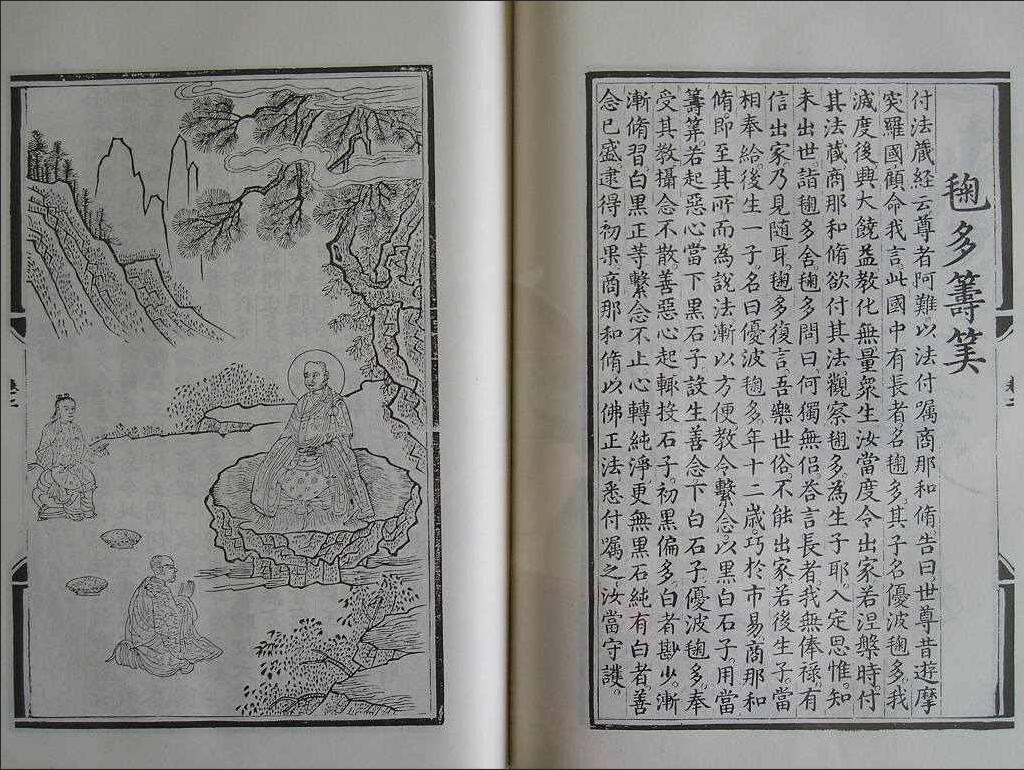 毱多籌筭
付法蔵経云尊者阿難以法付嘱商那和脩告曰世尊昔遊摩
突羅國顧命我言此國中有長者名毱多其子名優波毱多我
滅度後興大饒益教化無量衆生汝當度令出家若涅槃時付
其法蔵商那和脩欲付其法觀察毱多為生子耶入定思惟知
未出世詣毱多舍毱多問曰何獨無侶荅言長者我無俸禄有
信出家乃見随耳毱多復言吾樂世俗不能出家若後生子當
相奉給後生一子名曰優波毱多年十二歲巧於市易商那和
脩即至其所而為説法漸以方便教令繫念以黑白石子用當
籌筭若起惡心當下黑石子設生善念下白石子優波毱多奉
受其教攝念不散善惡心起輙投石子初黑偏多白者尠少漸
漸脩習白黑正等繫念不止心轉純淨更無黑石純有白者善
念已盛逮得初果商那和脩以佛正法悉付嘱之汝當守護